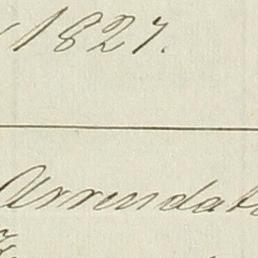 1827.
Arrendab